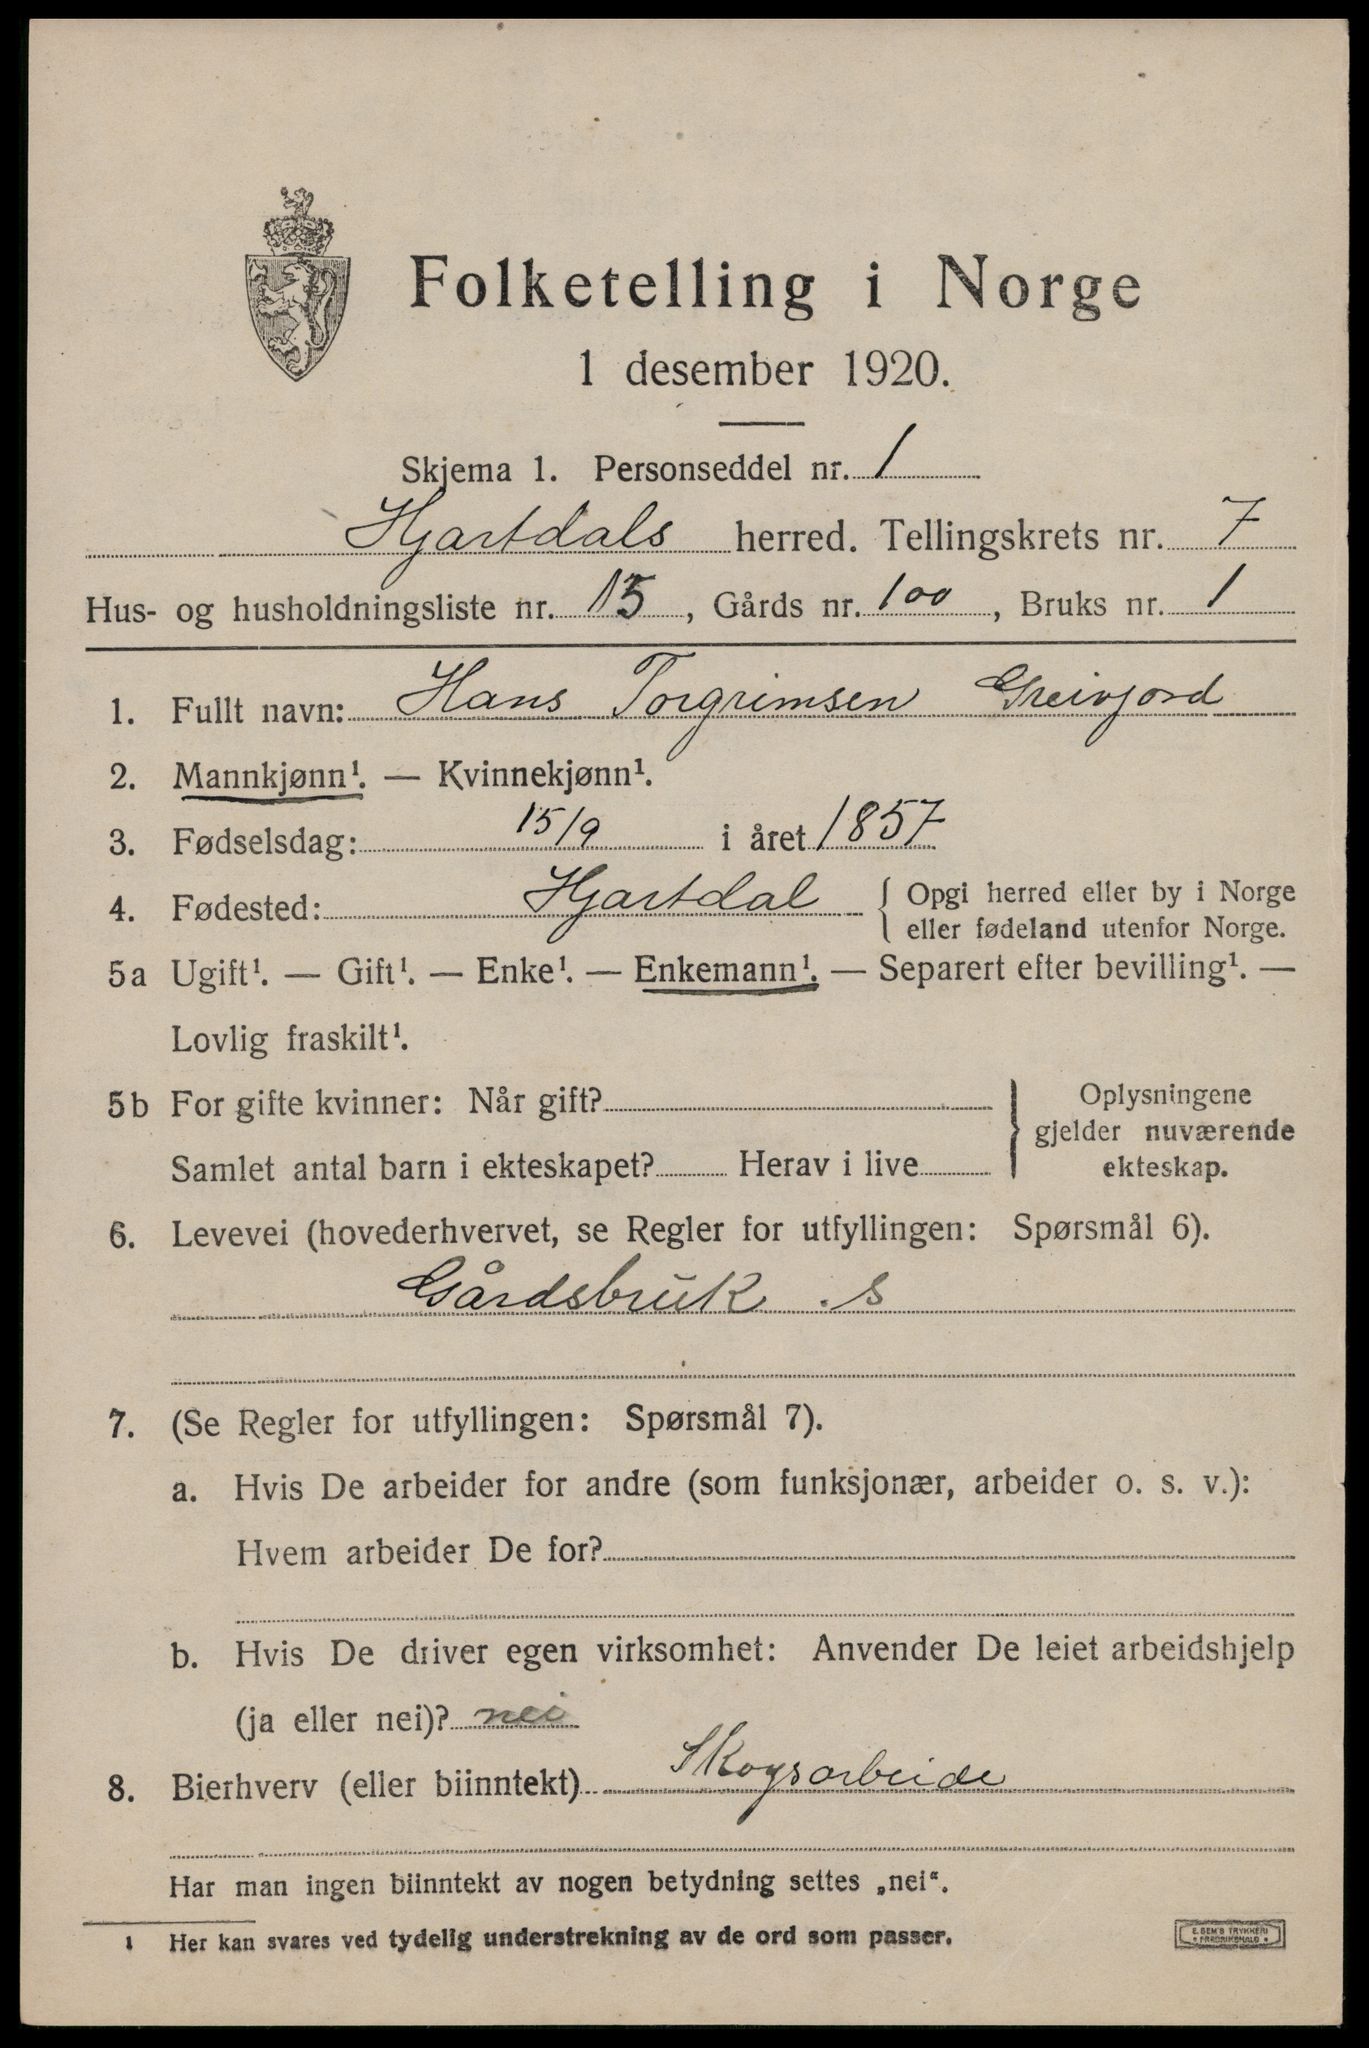 Folketelling i Norge
1 desember 1920.
Skjema 1. Personseddel nr. 1
Hjartdals herred. Tellingskrets nr. 7
Hus- og husholdningsliste nr. 15, Gårds nr. 100, Bruks nr. 1
1. Fullt navn: Hans Torgrimsen Greivjord
2. Mannkjønn¹. — Kvinnekjønn¹.
3. Fødselsdag: 15/9 i året 1857
4. Fødested: Hjartdal { Opgi herred eller by i Norge
eller fødeland utenfor Norge.
5a Ugift¹. — Gift¹. — Enke¹. — Enkemann¹. — Separert efter bevilling¹. —
Lovlig fraskilt¹.
5b For gifte kvinner: Når gift?
Samlet antal barn i ekteskapet? Herav i live
Oplysningene
gjelder nuværende
ekteskap.
6. Levevei (hovederhvervet, se Regler for utfyllingen: Spørsmål 6).
Gårdsbruk . s
7. (Se Regler for utfyllingen: Spørsmål 7).
a. Hvis De arbeider for andre (som funksjonær, arbeider o. s. v.):
Hvem arbeider De for?
b. Hvis De driver egen virksomhet: Anvender De leiet arbeidshjelp
(ja eller nei)? nei
8. Bierhverv (eller biinntekt) Skogsarbeide
Har man ingen biinntekt av nogen betydning settes „nei“.
1 Her kan svares ved tydelig understrekning av de ord som passer.
E. SEM'S TRYKKERI
FREDRIKSHALD